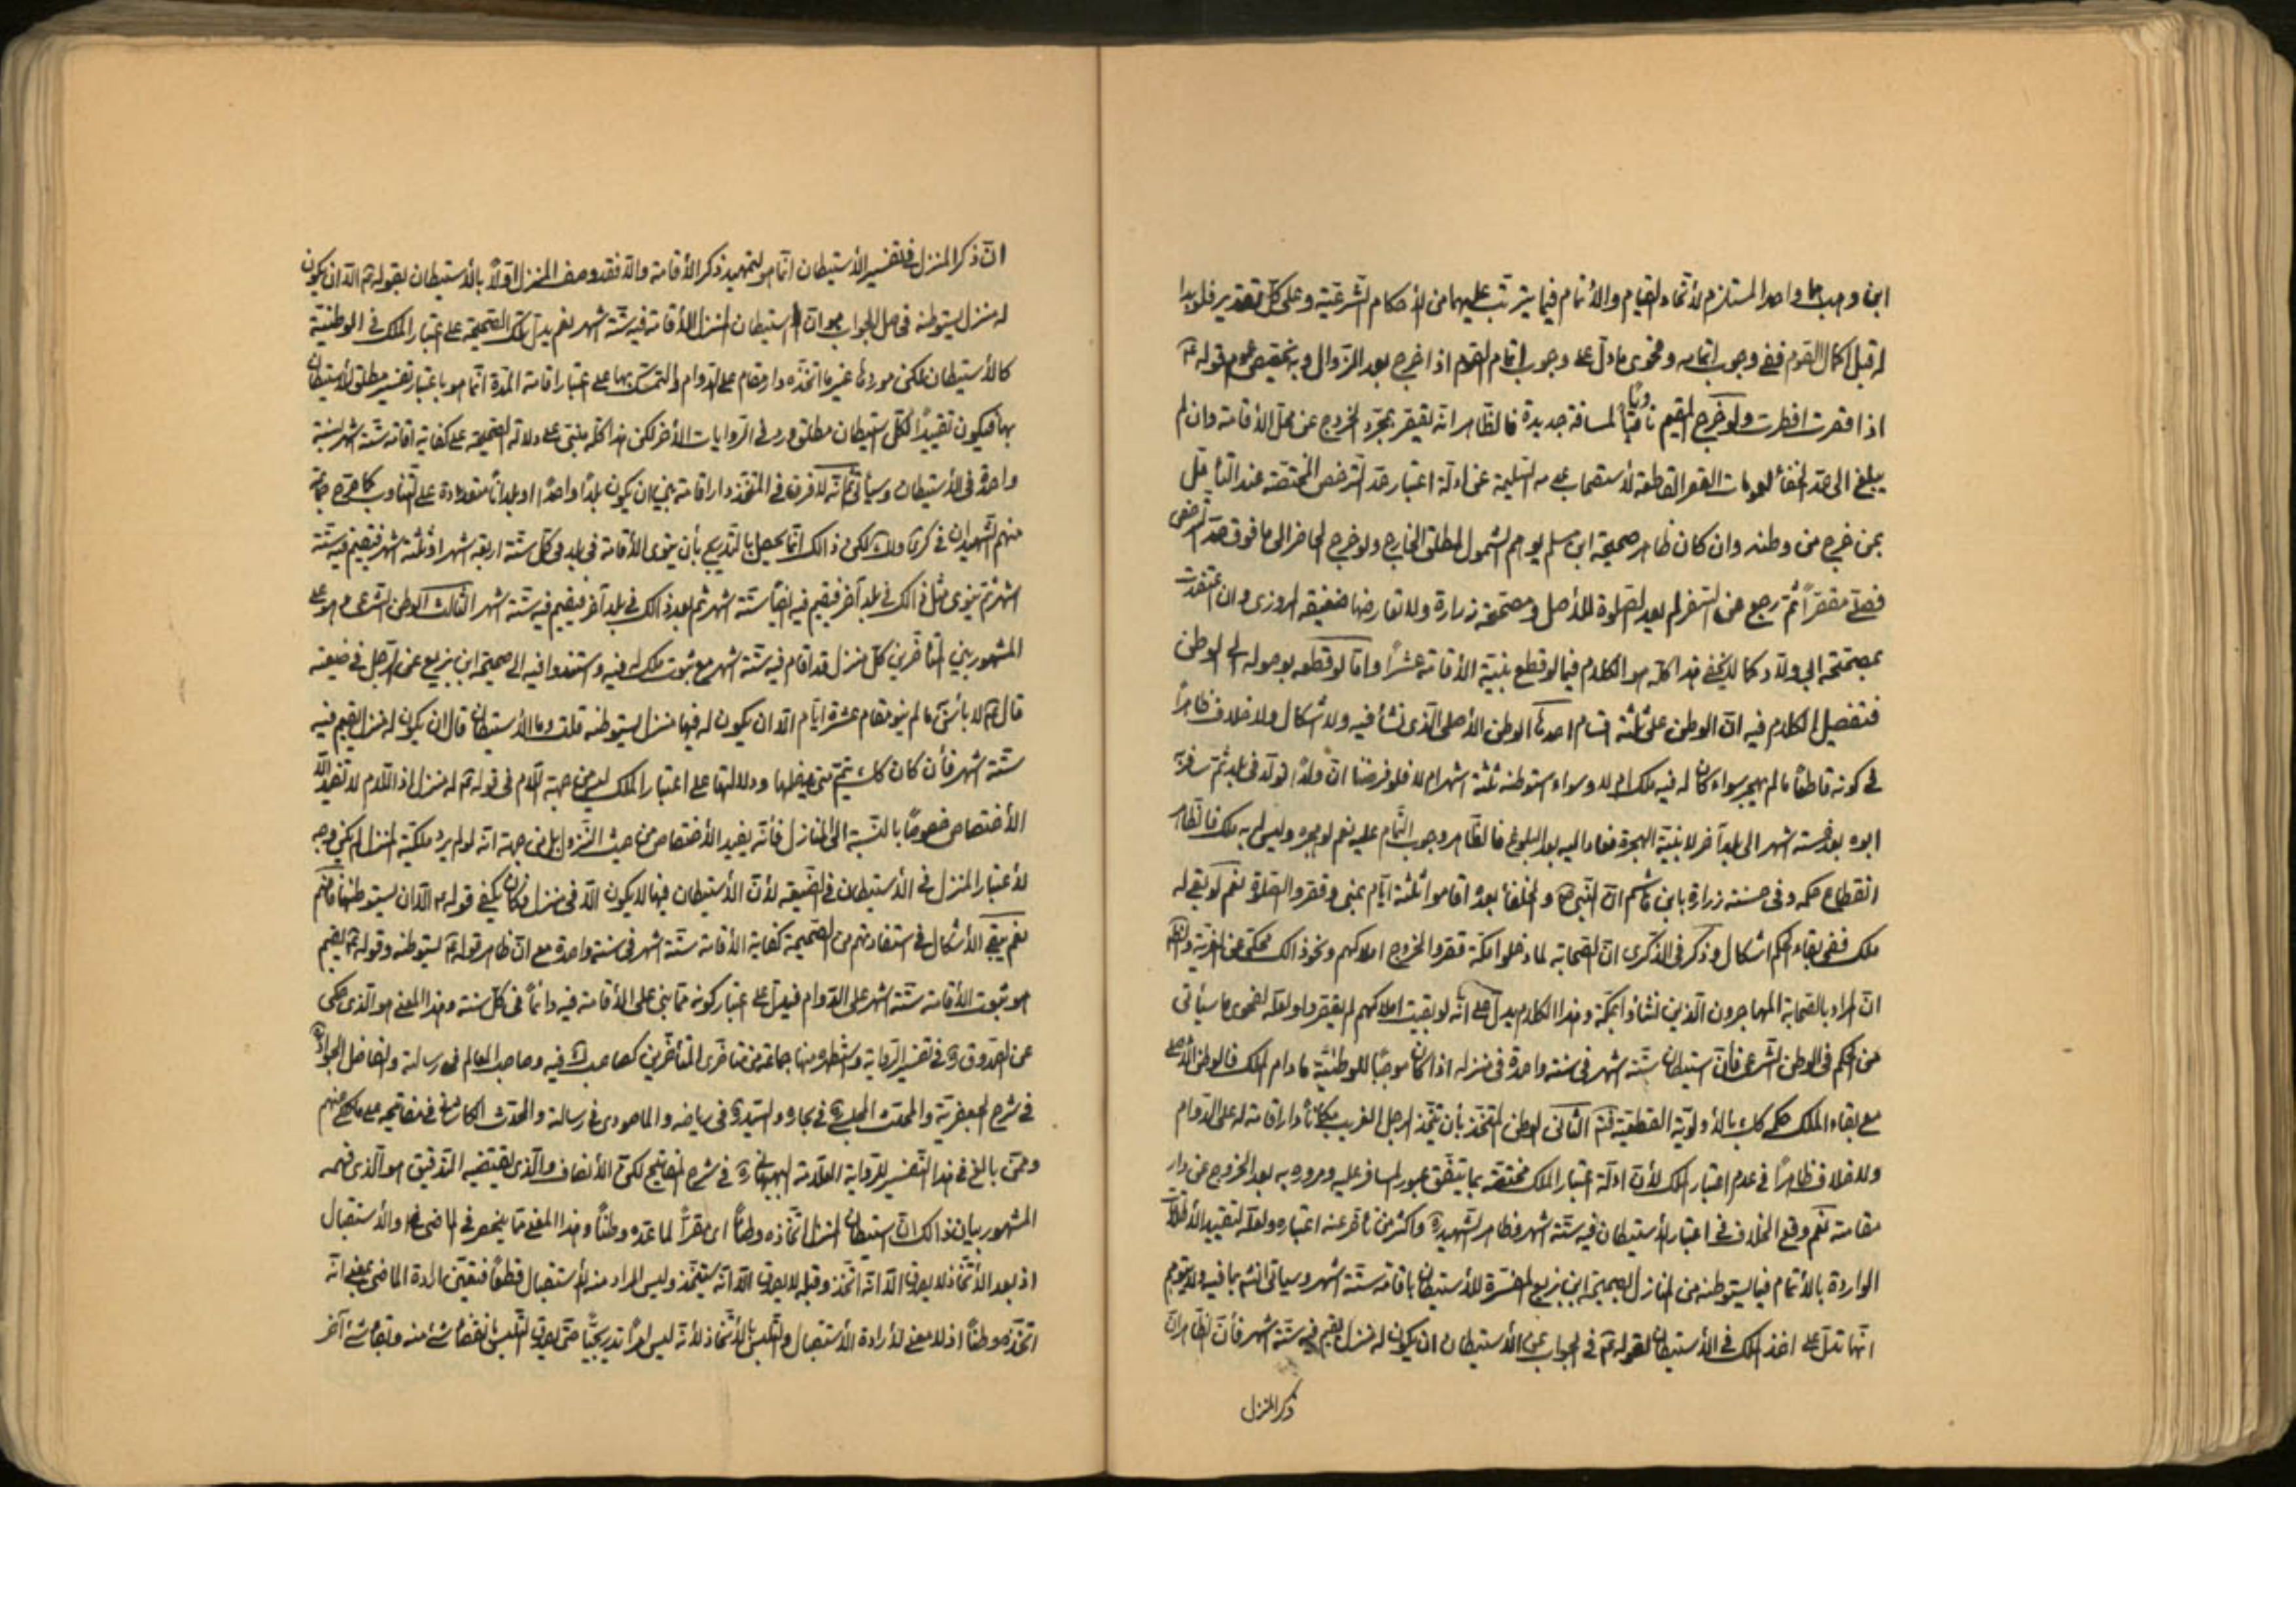 ابن وهب واحدا المستلزم لاتحاد الصيام والاتمام فيما يترتب عليهما من الأحكام الشرعية وعلى كل تقدير فلو بدا
له قبل اكمال الصوم ففي وجوب اتمامه وفحوى ما دل على وجوب اتمام الصوم اذا خرج بعد الزوال وبه تخصيص عموم قوله ع
اذا قصرت افطرت ولو خرج المقيم ناويا لمسافة جديدة فالظاهر انه يقصر بمجرد الخروج عن محل الأقامة وان لم
يبلغ الى حد الخفاء لعمومات القصر القاطعة لأستصحاب عدمه السليمة عن ادلة اعتبار حد الترخص المختصة عند التأمل
بمن خرج من وطنه وان كان ظاهر صحيحة ابن مسلم يوهم الشمول لمطلق الخارج ولو خرج الحاضر الى ما فوق حد الترخص
فصلى مقصرا ثم رجع عن السفر لم يعد الصلوة للأصل ومصححة زرارة ولا تعارضها ضعيفة المروزى وان اعتضدت
بمصححة ابي ولاد كما لا يخفى هذا كله هو الكلام فيما لو قطع بنية الأقامة عشرا واما لو قطعه بوصوله الى الوطن
فتفصيل الكلام فيه ان الوطن على ثلثة اقسام احدها الوطن الأصلى الذى نشأ فيه ولا اشكال ولا خلاف ظاهرا
فى كونه قاطعا ما لم يهجر سواء كان له فيه ملك ام لا وسواء استوطنه ستة اشهر ام لا فلو فرضنا ان ولدا تولد فى بلد ثم سافر به
ابوه بعد خمسة اشهر الى بلد آخر لا بنية الهجرة فعاد اليه بعد البلوغ فالظاهر وجوب التمام عليه نعم لو هجره وليس له به ملك فالظاهر
انقطاع حكمه وفى حسنة زرارة بابن هاشم ان النبى ص والخلفاء بعده اقاموا ثلثة ايام بمنى وقصروا الصلاة نعم لو بقى له
ملك ففى بقاء الحكم اشكال وذكر فى الذكرى ان الصحابة لما دخلوا مكة قصروا لخروج املاكهم ونحو ذالك محكى عن
ان المراد بالصحابة المهاجرون الذين نشأوا بمكة وهذا الكلام يدل على انه لو بقيت املاكهم لم يقصروا ولعله لفحوى ما سيأتى
من الحكم فى الوطن الشرعى فأن استيطان ستة اشهر فى سنة واحدة فى منزله اذا كان موجبا للوطنية ما دام الملك فالوطن الأصلى
مع بقاء الملك حكمه كك بالأولوية القطعية فتم الثانى الوطن المتخذ بأن يتخذ الرجل الغريب مكانا دار اقامة له على الدوام
ولا خلاف ظاهرا فى عدم اعتبار الملك لأن ادلة اعتبار الملك مختصة بما يتفق عبور المسافر عليه ومروره به بعد الخروج عن دار
مقامه نعم وقع الخلاف فى اعتبار الأستيطان فيه ستة اشهر فظاهر الشهيد ره واكثر من تأخر عنه اعتباره ولعله لتقييد الأطلاقات
الواردة بالأتمام فيما يستوطنه من المنازل بصحيحة ابن بزيع المفسرة للأستيطان باقامة ستة اشهر وسيأتى انشه بما فيه ولا يتوهم
انها تدل على اخذ الملك فى الأستيطان لقوله ع فى الجواب عن الأستيطان ان يكون له منزل يقيم فيه ستة اشهر فأن الظاهر ان
ذكر المنزل
ان ذكر المنزل فى تفسير الأستيطان انما هو لتمهيد ذكر الأقامة والا فقد وصف المنزل اولا بالأستيطان بقوله ع الا ان يكون
له منزل يستوطنه فحاصل الجواب هو ان استيطان المنزل الأقامة فيه ستة اشهر نعم يدل تلك الصحيحة على اعتبار الملك فى الوطنية
كالأستيطان لكن موردها غير ما اتخذه دار مقام على الدوام والتمسك بها على اعتبار اقامة المدة انما هو باعتبار تفسير مطلق الأستيطان
بها فيكون تقييدا لكل استيطان مطلق ورد فى الروايات الأخر لكن هذا كله مبنى على دلالة الصحيحة على كفاية اقامة ستة اشهر لسنة
واحدة فى الأستيطان وسيأتى ثم انه لا فرق فى المتخذ دار اقامة بين ان يكون بلدا واحدا او بلدانا متعددة على التناوب كما صرح جماعة
منهم الشهيدان فى كرى ولك لكن ذالك انما يحصل بالتدريج بأن ينوى الأقامة فى بلد فى كل سنة اربعة اشهر او ثلثة اشهر فيقيم فيه ستة
اشهر ثم ينوى مثل ذالك فى بلد آخر فيقيم فيه ايضا ستة اشهر ثم بعد ذالك فى بلد آخر فيقيم فيه ستة اشهر الثالث الوطن الشرعى وهو على
المشهور بين المتأخرين كل منزل قد اقام فيه ستة اشهر مع ثبوت ملك له فيه واستندوا فيه الى صحيحة ابن بزيع عن الرجل فى ضيعته
قال ع لا بأس ما لم ينو مقام عشرة ايام الا ان يكون له فيها منزل يستوطنه قلت وما الأستيطان قال ان يكون له منزل يقيم فيه
ستة اشهر فأن كان كك يتم متى يدخلها ودلالتها على اعتبار الملك ليس من جهة اللام فى قوله ع له منزل اذ اللام لا تفيد الا
الأختصاص خصوصا بالنسبة الى المنازل فأنه يفيد الأختصاص من حيث النزول بل من جهة انه لو لم يرد ملكية المنزل لم يكن وجه
لأعتبار المنزل فى الأستيطان فى الضيعة لأن الأستيطان فيها لا يكون الا فى منزل فكان يكفى قوله ع الا ان يستوطنها فافهم
نعم يبقى الأشكال فى استفادتهم من الصحيحة كفاية الأقامة ستة اشهر فى سنة واحدة مع ان ظاهر قوله ع يستوطنه وقوله ع يقيم
هو ثبوت الأقامة ستة اشهر على الدوام فيدل على اعتبار كونه مما بنى على الأقامة فيه دائما فى كل سنة وهذا المعنى هو الذى حكى
عن الصدوق ره فى تفسير الرواية واستظهره منها جماعة من متأخرى المتأخرين كصاحب لك فيه وصاحب المعالم فى رسالة والفاضل الجواد
فى شرح الجعفرية والمحدث المجلسى فى بحاره والسيد ره فى رياضه والماحوزى فى رسالة والمحدث الكاشانى فى مفاتيحه على ما حكى عنهم
وممن بالغ فى هذا التفسير للرواية العلامة البهبهانى ره فى شرح المفاتيح لكن الأنصاف والذى يقتضيه التدقيق هو الذى فهمه
المشهور بيان ذالك ان استيطان المنزل اتخاذه وطنا اى مقرا لما عده وطنا وهذا المعنى مما ينحصر فى الماضى والأستقبال
اذ بعد الأتخاذ لا يصدق الا انه اتخذ وقبله لا يصدق الا انه سيتخذ وليس المراد منه الأستقبال قطعا فتعين ارادة الماضى بمعنى انه
اتخذه وطنا اذ لا معنى لأرادة الأستقبال والتلبس بالأتخاذ لأنه ليس امرا تدريجيا حتى يصدق التلبس بانقضاء شئ منه وبقاء شئ آخر